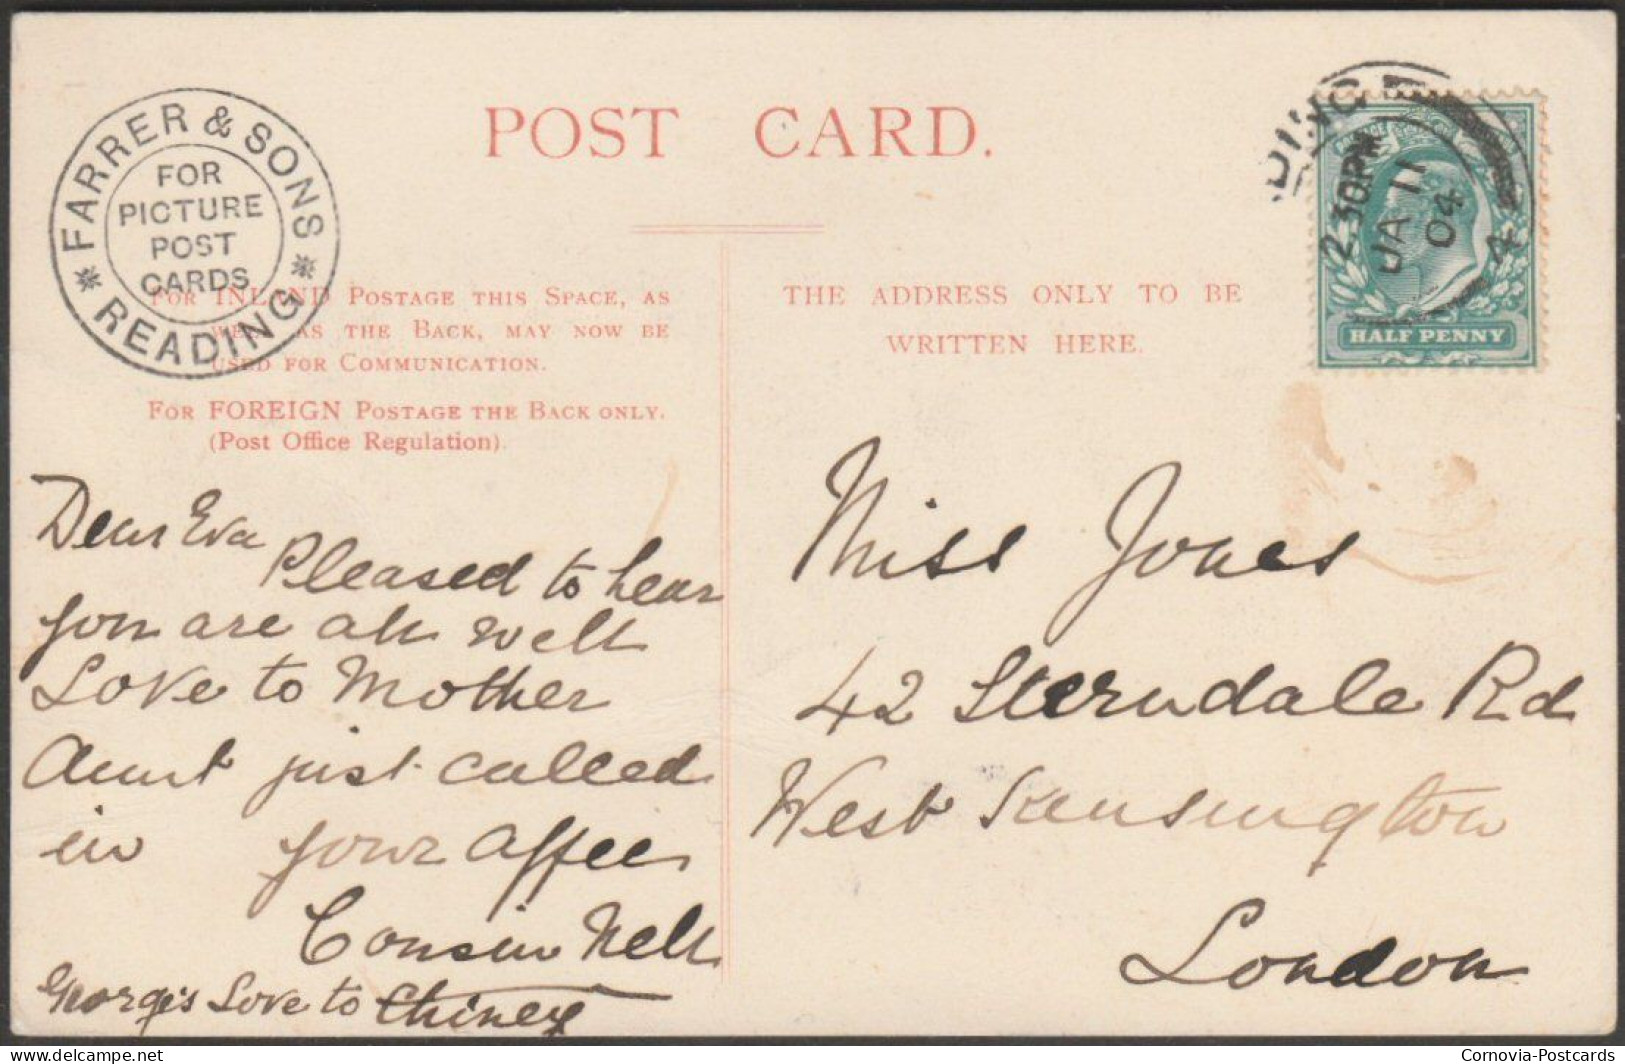 POST CARD.
FARRER & SONS
READING
FOR
PICTURE
POST
CARDS
FOR INLAND POSTAGE THIS SPACE, AS
WELL AS THE BACK, MAY NOW BE
USED FOR COMMUNICATION.
FOR FOREIGN POSTAGE THE BACK ONLY.
(Post Office Regulation).
THE ADDRESS ONLY TO BE
WRITTEN HERE.
DING
2.30PM
JA 11
04
4
HALF PENNY
Dear Eva
Pleased to hear
you are all well
Love to Mother
Aunt just called
in your Affec
Cousin Nell
Georgis Love to
Miss Jones
42 Sterndale Rd
West Kensington
London
delcampe.net
Cornovia-Postcards